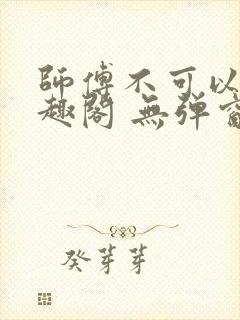 師傅不可以
趣閣 無彈
癸芽芽